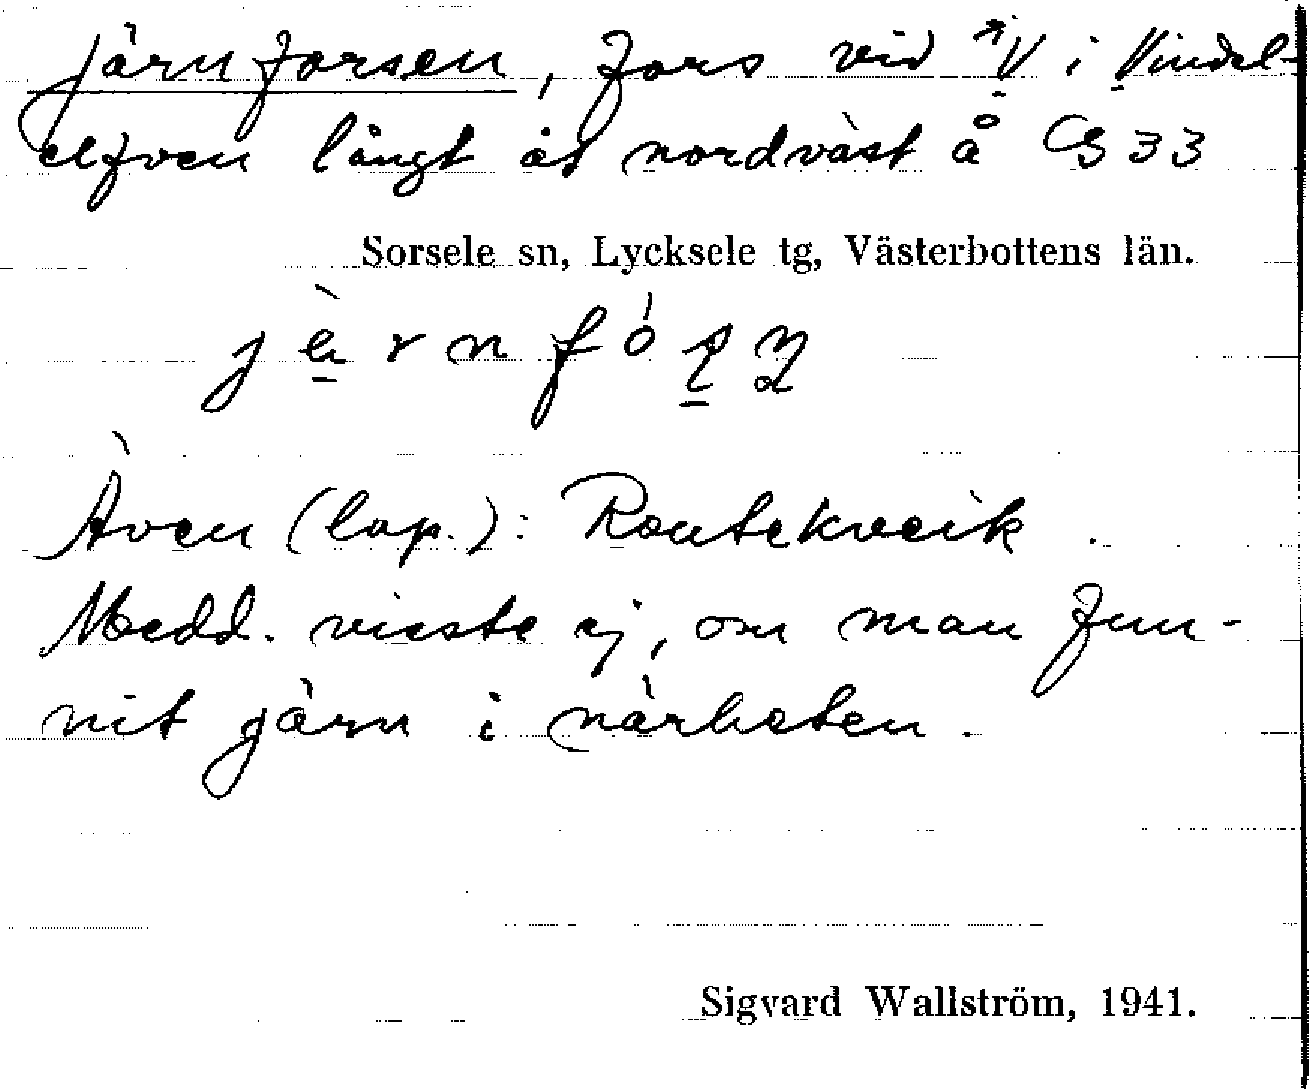 Järnforsen, fors vid "V i Vindel-
elfven långt åt nordväst å GS 33
Sorsele sn, Lycksele tg, Västerbottens län.
Även (lap.): Routekveik.
Medd. visste ej, om man fun-
nit järn i närheten.
Sigvard Wallström, 1941.